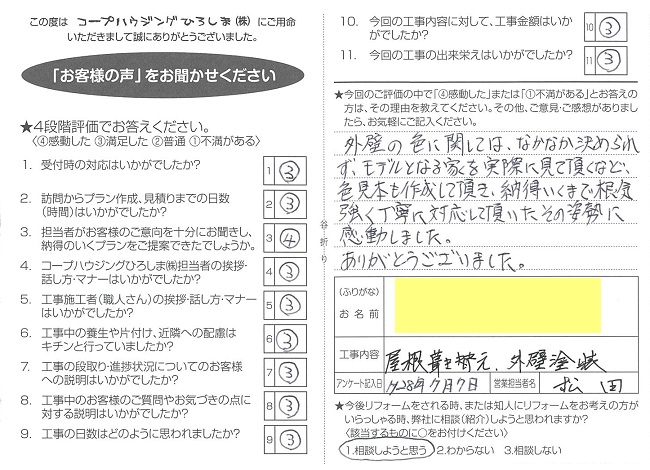 この度は コープハウジングひろしま(株) にご用命
いただきまして誠にありがとうございました。
「お客様の声」をお聞かせください
★4段階評価でお答えください。
〈④感動した ③満足した ②普通 ①不満がある〉
1. 受付時の対応はいかがでしたか？
1 ③
2. 訪問からプラン作成、見積りまでの日数
(時間)はいかがでしたか？
2 ③
3. 担当者がお客様のご意向を十分にお聞きし、
納得のいくプランをご提案できたでしょうか。
3 ④
4. コープハウジングひろしま㈱担当者の挨拶・
話し方・マナーはいかがでしたか？
4 ③
5. 工事施工者(職人さん)の挨拶・話し方・マナー
はいかがでしたか？
5 ③
6. 工事中の養生や片付け、近隣への配慮は
キチンと行っていましたか？
6 ③
7. 工事の段取り・進捗状況についてのお客様
への説明はいかがでしたか？
7 ③
8. 工事中のお客様のご質問やお気づきの点に
対する説明はいかがでしたか？
8 ③
9. 工事の日数はどのように思われましたか？
9 ③
谷折り
10. 今回の工事内容に対して、工事金額はいか
がでしたか？
10 ③
11. 今回の工事の出来栄えはいかがでしたか？
11 ③
★今回のご評価の中で「④感動した」または「①不満がある」とお答えの
方は、その理由を教えてください。その他、ご意見・ご感想がありまし
たら、お気軽にご記入ください。
外壁の色に関しては、なかなか決められ
ず、モデルとなる家を実際に見て頂くなど、
色見本も作成して頂き、納得いくまで根気
強く丁寧に対応して頂いたその姿勢に
感動しました。
ありがとうございました。
(ふりがな)
お名前
工事内容 屋根葺き替え、外壁塗装
アンケート記入日 H28年7月7日 営業担当者名 松田
★今後リフォームをされる時、または知人にリフォームをお考えの方が
いらっしゃる時、弊社に相談(紹介)しようと思われますか？
〈該当するものに○をお付けください〉
1.相談しようと思う 2.わからない 3.相談しない